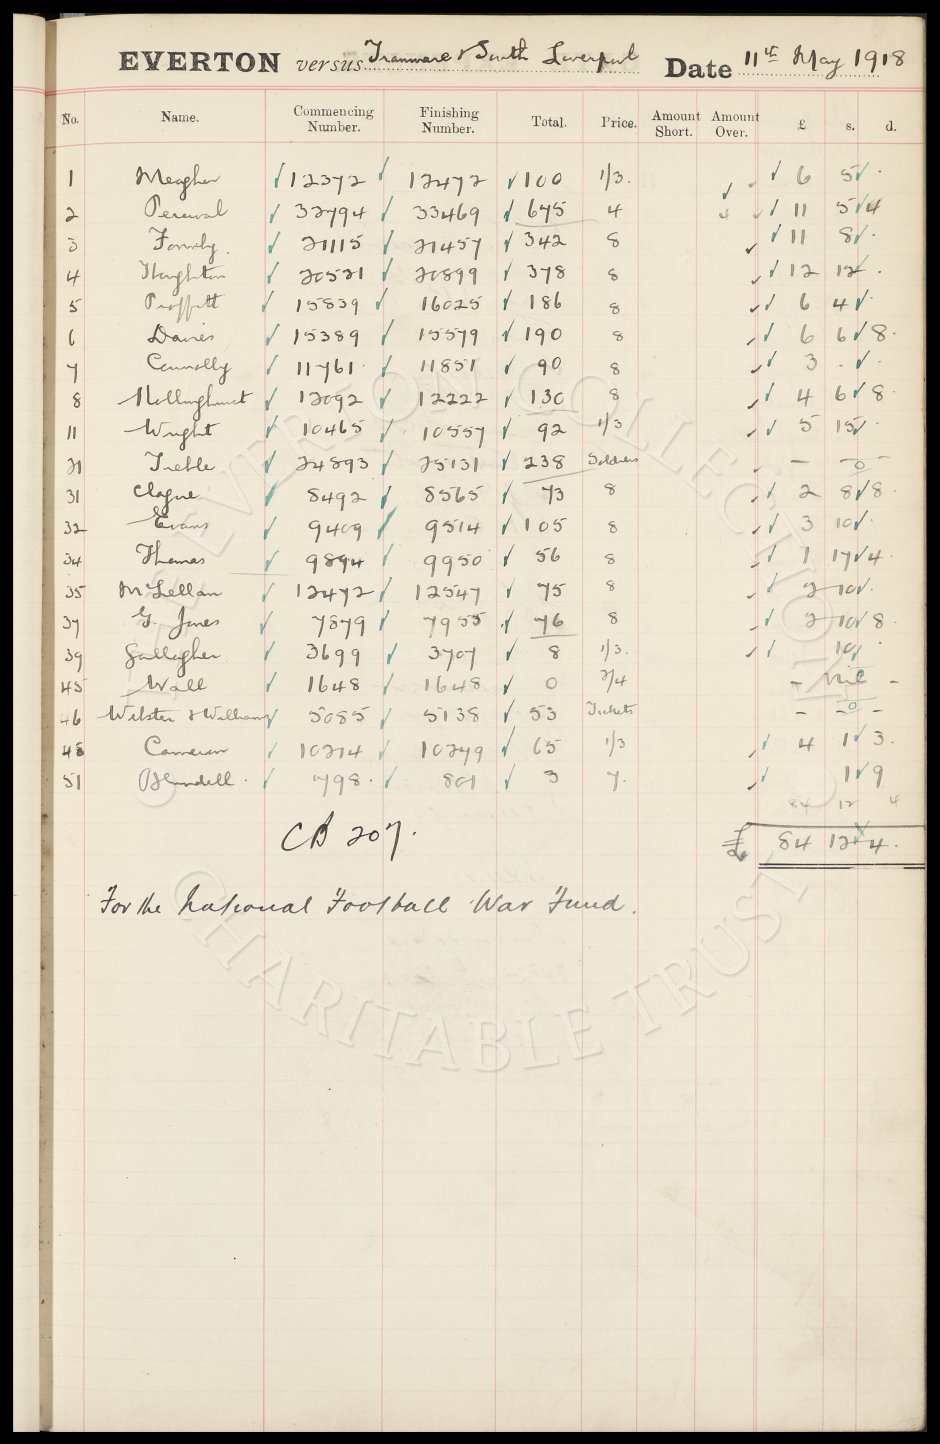 EVERTON versus Tranmere & South Liverpool Date 11th May 1918
No. Name. Commencing Number. Finishing Number. Total. Price. Amount Short. Amount Over. £ s. d.
1 Meagher 12372 12472 100 1/3. 6 5 .
2 Percival 32794 33469 675 4 4 11 5 4
3 Formby. 21115 21457 342 8 11 8 .
4 Houghton 20521 20899 378 8 12 12 .
5 Proffitt 15839 16025 186 8 6 4 .
6 Davies 15389 15579 190 8 6 6 8.
7 Connolly 11761 11851 90 8 3 . .
8 Hollinghurst 12092 12222 130 8 4 6 8.
11 Wright 10465 10557 92 1/3 5 15 .
21 Treble 24893 25131 238 Soldiers - 0 -
31 Clague 8492 8565 73 8 2 8 8.
32 Evans 9409 9514 105 8 3 10 .
34 Thomas 9894 9950 56 8 1 17 4.
35 McLellan 12472 12547 75 8 2 10 .
37 G. Jones 7879 7955 76 8 2 10 8
39 Gallagher. 3699 3707 8 1/3. 10 .
45 Wall 1648 1648 0 2/4 - nil -
46 Webster & Williams 5085 5138 53 Tickets - 0 -
48 Cameron 10214 10279 65 1/3 4 1 3.
51 Blundell. 798. 801 3 7. 1 9
84 12 4
CB 207.
£ 84 12 4.
For the National Football War Fund.
EVERTON COLLECTION
© CHARITABLE TRUST ©